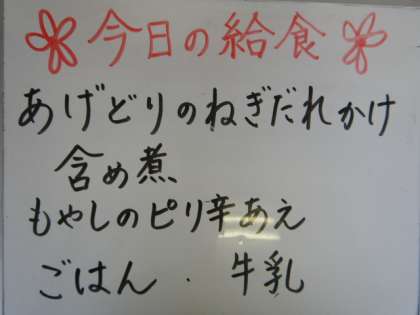 今日の給食
あげどりのねぎだれかけ
含め煮
もやしのピリ辛あえ
ごはん ・ 牛乳